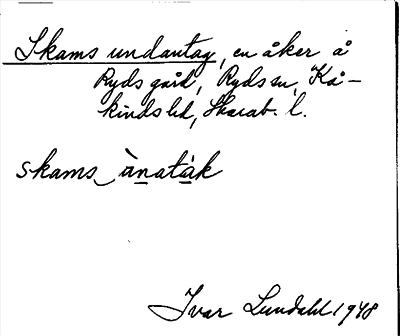 Skams undantag, en åker å
Ryds gård, Ryds sn, Kå-
kinds hd, Skarab. l.
skams_ànatàk
Ivar Lundahl 1948